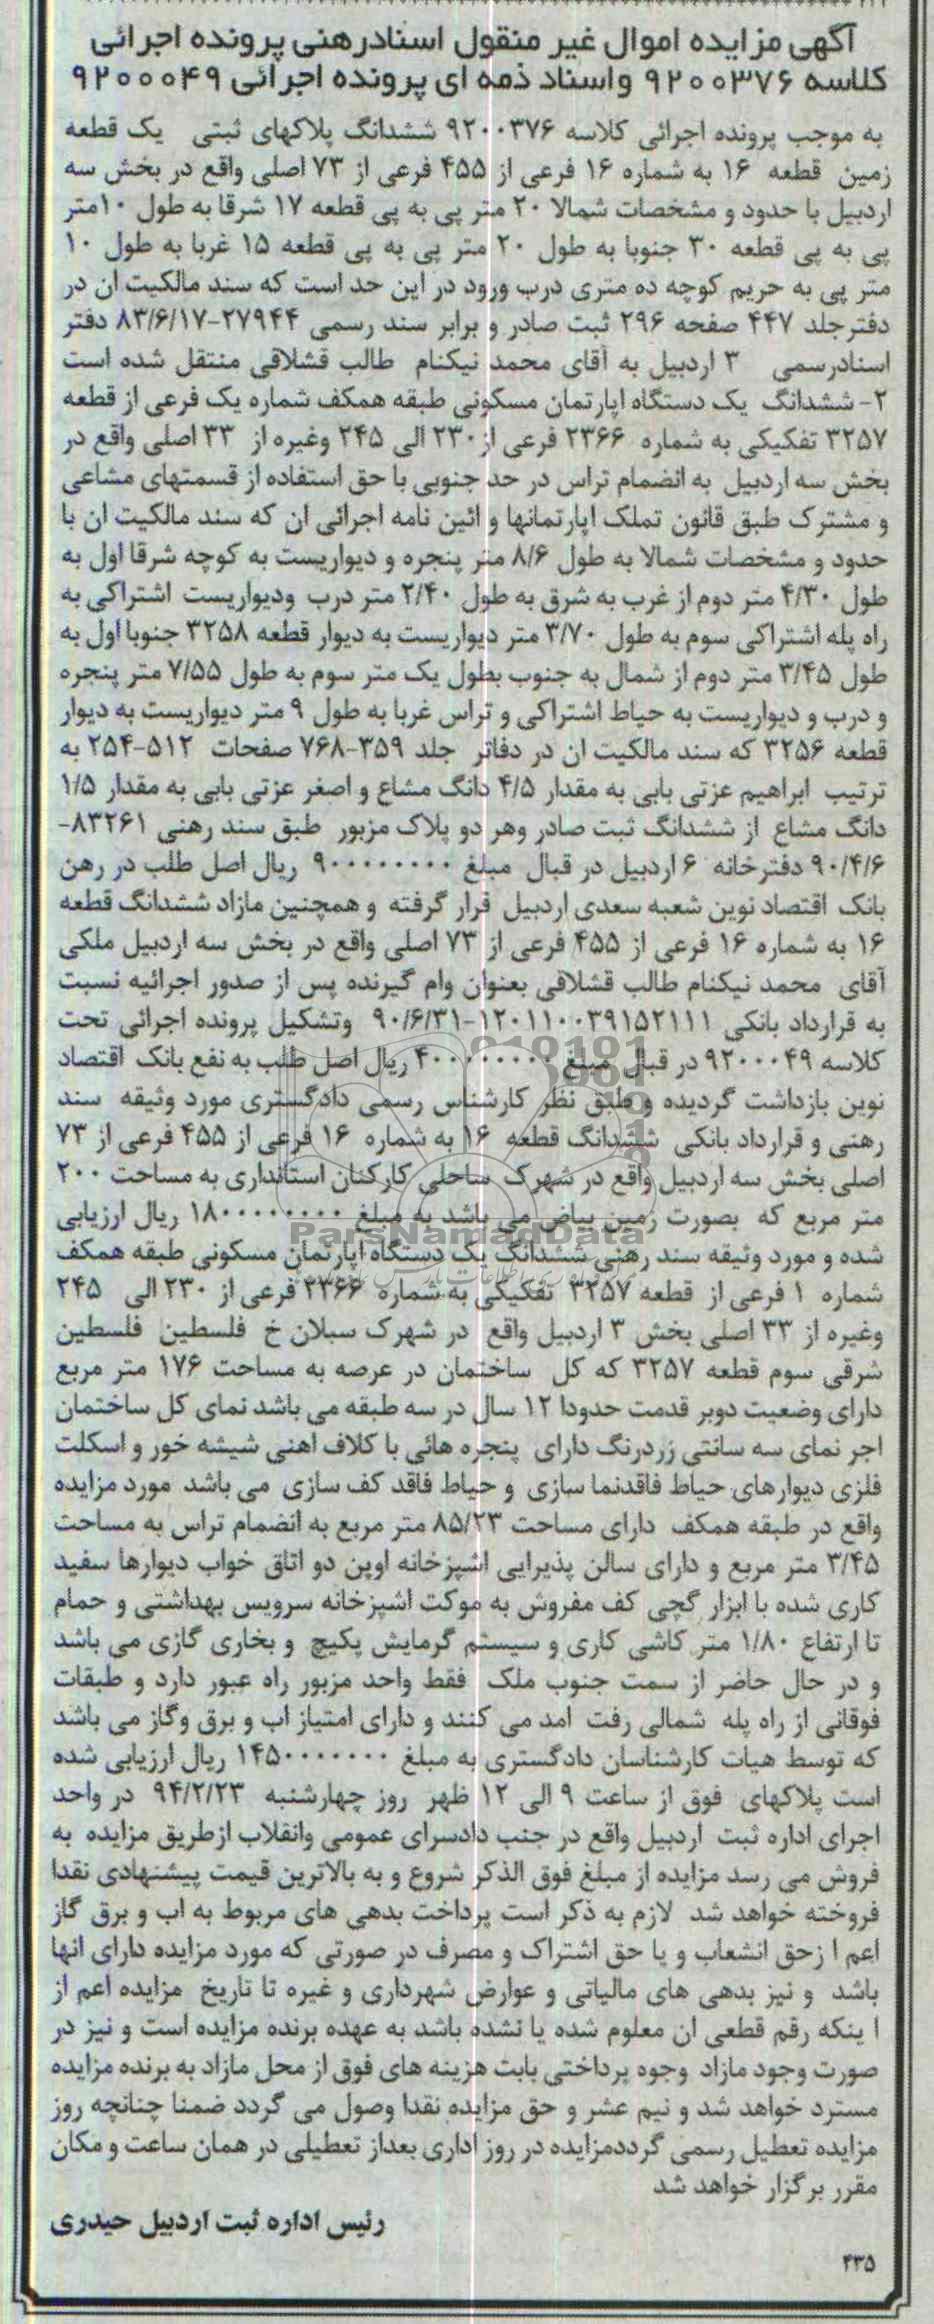 آگهی مزایده اموال غیر منقول اسنادرهنی پرونده اجرائی
کلاسه ۹۲۰۰۳۷۶ واسناد ذمه ای پرونده اجرائی ۹۲۰۰۰۴۹
به موجب پرونده اجرائی کلاسه ۹۲۰۰۳۷۶ ششدانگ پلاکهای ثبتی یک قطعه
زمین قطعه ۱۶ به شماره ۱۶ فرعی از ۴۵۵ فرعی از ۷۳ اصلی واقع در بخش سه
اردبیل با حدود و مشخصات شمالا ۲۰ متر پی به پی قطعه ۱۷ شرقا به طول ۱۰متر
پی به پی قطعه ۳۰ جنوبا به طول ۲۰ متر پی به پی قطعه ۱۵ غربا به طول ۱۰
متر پی به حریم کوچه ده متری درب ورود در این حد است که سند مالکیت ان در
دفترجلد ۴۴۷ صفحه ۲۹۶ ثبت صادر و برابر سند رسمی ۲۷۹۴۴-۸۳/۶/۱۷ دفتر
اسنادرسمی ۳ اردبیل به آقای محمد نیکنام طالب قشلاقی منتقل شده است
۲- ششدانگ یک دستگاه اپارتمان مسکونی طبقه همکف شماره یک فرعی از قطعه
۳۲۵۷ تفکیکی به شماره ۲۳۶۶ فرعی از۲۳۰ الی ۲۴۵ وغیره از ۳۳ اصلی واقع در
بخش سه اردبیل به انضمام تراس در حد جنوبی با حق استفاده از قسمتهای مشاعی
و مشترک طبق قانون تملک اپارتمانها و ائین نامه اجرائی ان که سند مالکیت ان با
حدود و مشخصات شمالا به طول ۸/۶ متر پنجره و دیواریست به کوچه شرقا اول به
طول ۴/۳۰ متر دوم از غرب به شرق به طول ۲/۴۰ متر درب ودیواریست اشتراکی به
راه پله اشتراکی سوم به طول ۳/۷۰ متر دیواریست به دیوار قطعه ۳۲۵۸ جنوبا اول به
طول ۳/۴۵ متر دوم از شمال به جنوب بطول یک متر سوم به طول ۷/۵۵ متر پنجره
و درب و دیواریست به حیاط اشتراکی و تراس غربا به طول ۹ متر دیواریست به دیوار
قطعه ۳۲۵۶ که سند مالکیت ان در دفاتر جلد ۳۵۹-۷۶۸ صفحات ۵۱۲-۲۵۴ به
ترتیب ابراهیم عزتی بابی به مقدار ۴/۵ دانگ مشاع و اصغر عزتی بابی به مقدار ۱/۵
دانگ مشاع از ششدانگ ثبت صادر وهر دو پلاک مزبور طبق سند رهنی ۸۳۲۶۱-
۹۰/۴/۶ دفترخانه ۶ اردبیل در قبال مبلغ ۹۰۰۰۰۰۰۰۰ ریال اصل طلب در رهن
بانک اقتصاد نوین شعبه سعدی اردبیل قرار گرفته و همچنین مازاد ششدانگ قطعه
۱۶ به شماره ۱۶ فرعی از ۴۵۵ فرعی از ۷۳ اصلی واقع در بخش سه اردبیل ملکی
آقای محمد نیکنام طالب قشلاقی بعنوان وام گیرنده پس از صدور اجرائیه نسبت
به قرارداد بانکی ۱۲۰۱۱۰۰۳۹۱۵۲۱۱۱-۹۰/۶/۳۱ وتشکیل پرونده اجرائی تحت
کلاسه ۹۲۰۰۰۴۹ در قبال مبلغ ۴۰۰۰۰۰۰۰۰ ریال اصل طلب به نفع بانک اقتصاد
نوین بازداشت گردیده و طبق نظر کارشناس رسمی دادگستری مورد وثیقه سند
رهنی و قرارداد بانکی ششدانگ قطعه ۱۶ به شماره ۱۶ فرعی از ۴۵۵ فرعی از ۷۳
اصلی بخش سه اردبیل واقع در شهرک ساحلی کارکنان استانداری به مساحت ۲۰۰
متر مربع که بصورت زمین بیاض می باشد به مبلغ ۱۸۰۰۰۰۰۰۰۰ ریال ارزیابی
ParsNamadData
شده و مورد وثیقه سند رهنی ششدانگ یک دستگاه اپارتمان مسکونی طبقه همکف
شماره ۱ فرعی از قطعه ۳۲۵۷ تفکیکی به شماره ۲۳۶۶ فرعی از ۲۳۰ الی ۲۴۵
وغیره از ۳۳ اصلی بخش ۳ اردبیل واقع در شهرک سبلان خ فلسطین فلسطین
شرقی سوم قطعه ۳۲۵۷ که کل ساختمان در عرصه به مساحت ۱۷۶ متر مربع
دارای وضعیت دوبر قدمت حدودا ۱۲ سال در سه طبقه می باشد نمای کل ساختمان
اجر نمای سه سانتی زردرنگ دارای پنجره هائی با کلاف اهنی شیشه خور و اسکلت
فلزی دیوارهای حیاط فاقدنما سازی و حیاط فاقد کف سازی می باشد مورد مزایده
واقع در طبقه همکف دارای مساحت ۸۵/۲۳ متر مربع به انضمام تراس به مساحت
۳/۴۵ متر مربع و دارای سالن پذیرایی اشپزخانه اوپن دو اتاق خواب دیوارها سفید
کاری شده با ابزار گچی کف مفروش به موکت اشپزخانه سرویس بهداشتی و حمام
تا ارتفاع ۱/۸۰ متر کاشی کاری و سیستم گرمایش پکیج و بخاری گازی می باشد
و در حال حاضر از سمت جنوب ملک فقط واحد مزبور راه عبور دارد و طبقات
فوقانی از راه پله شمالی رفت امد می کنند و دارای امتیاز اب و برق وگاز می باشد
که توسط هیات کارشناسان دادگستری به مبلغ ۱۴۵۰۰۰۰۰۰۰ ریال ارزیابی شده
است پلاکهای فوق از ساعت ۹ الی ۱۲ ظهر روز چهارشنبه ۹۴/۲/۲۳ در واحد
اجرای اداره ثبت اردبیل واقع در جنب دادسرای عمومی وانقلاب ازطریق مزایده به
فروش می رسد مزایده از مبلغ فوق الذکر شروع و به بالاترین قیمت پیشنهادی نقدا
فروخته خواهد شد لازم به ذکر است پرداخت بدهی های مربوط به اب و برق گاز
اعم ا زحق انشعاب و یا حق اشتراک و مصرف در صورتی که مورد مزایده دارای انها
باشد و نیز بدهی های مالیاتی و عوارض شهرداری و غیره تا تاریخ مزایده اعم از
ا ینکه رقم قطعی ان معلوم شده یا نشده باشد به عهده برنده مزایده است و نیز در
صورت وجود مازاد وجوه پرداختی بابت هزینه های فوق از محل مازاد به برنده مزایده
مسترد خواهد شد و نیم عشر و حق مزایده نقدا وصول می گردد ضمنا چنانچه روز
مزایده تعطیل رسمی گرددمزایده در روز اداری بعداز تعطیلی در همان ساعت و مکان
مقرر برگزار خواهد شد
رئیس اداره ثبت اردبیل حیدری
۴۳۵